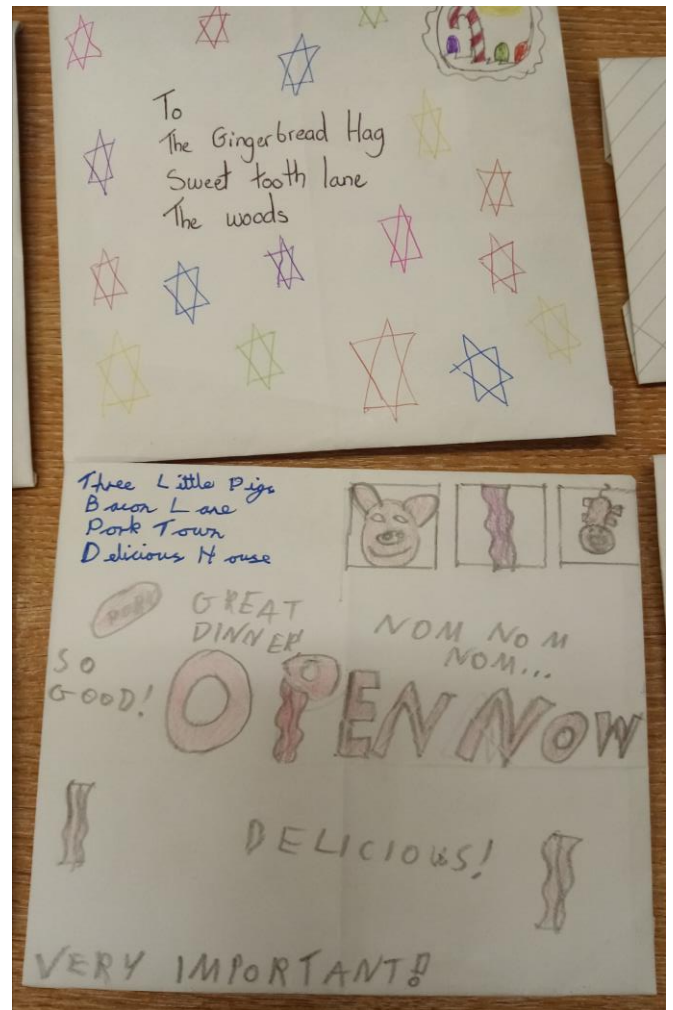 To
The Gingerbread Hag
Sweet tooth lane
The woods
Three Little Pigs
Bacon Lane
Pork Town
Delicious House
PORK
GREAT
DINNER!
NOM NOM
NOM...
SO
GOOD!
OPEN NOW
DELICIOUS!
VERY IMPORTANT!